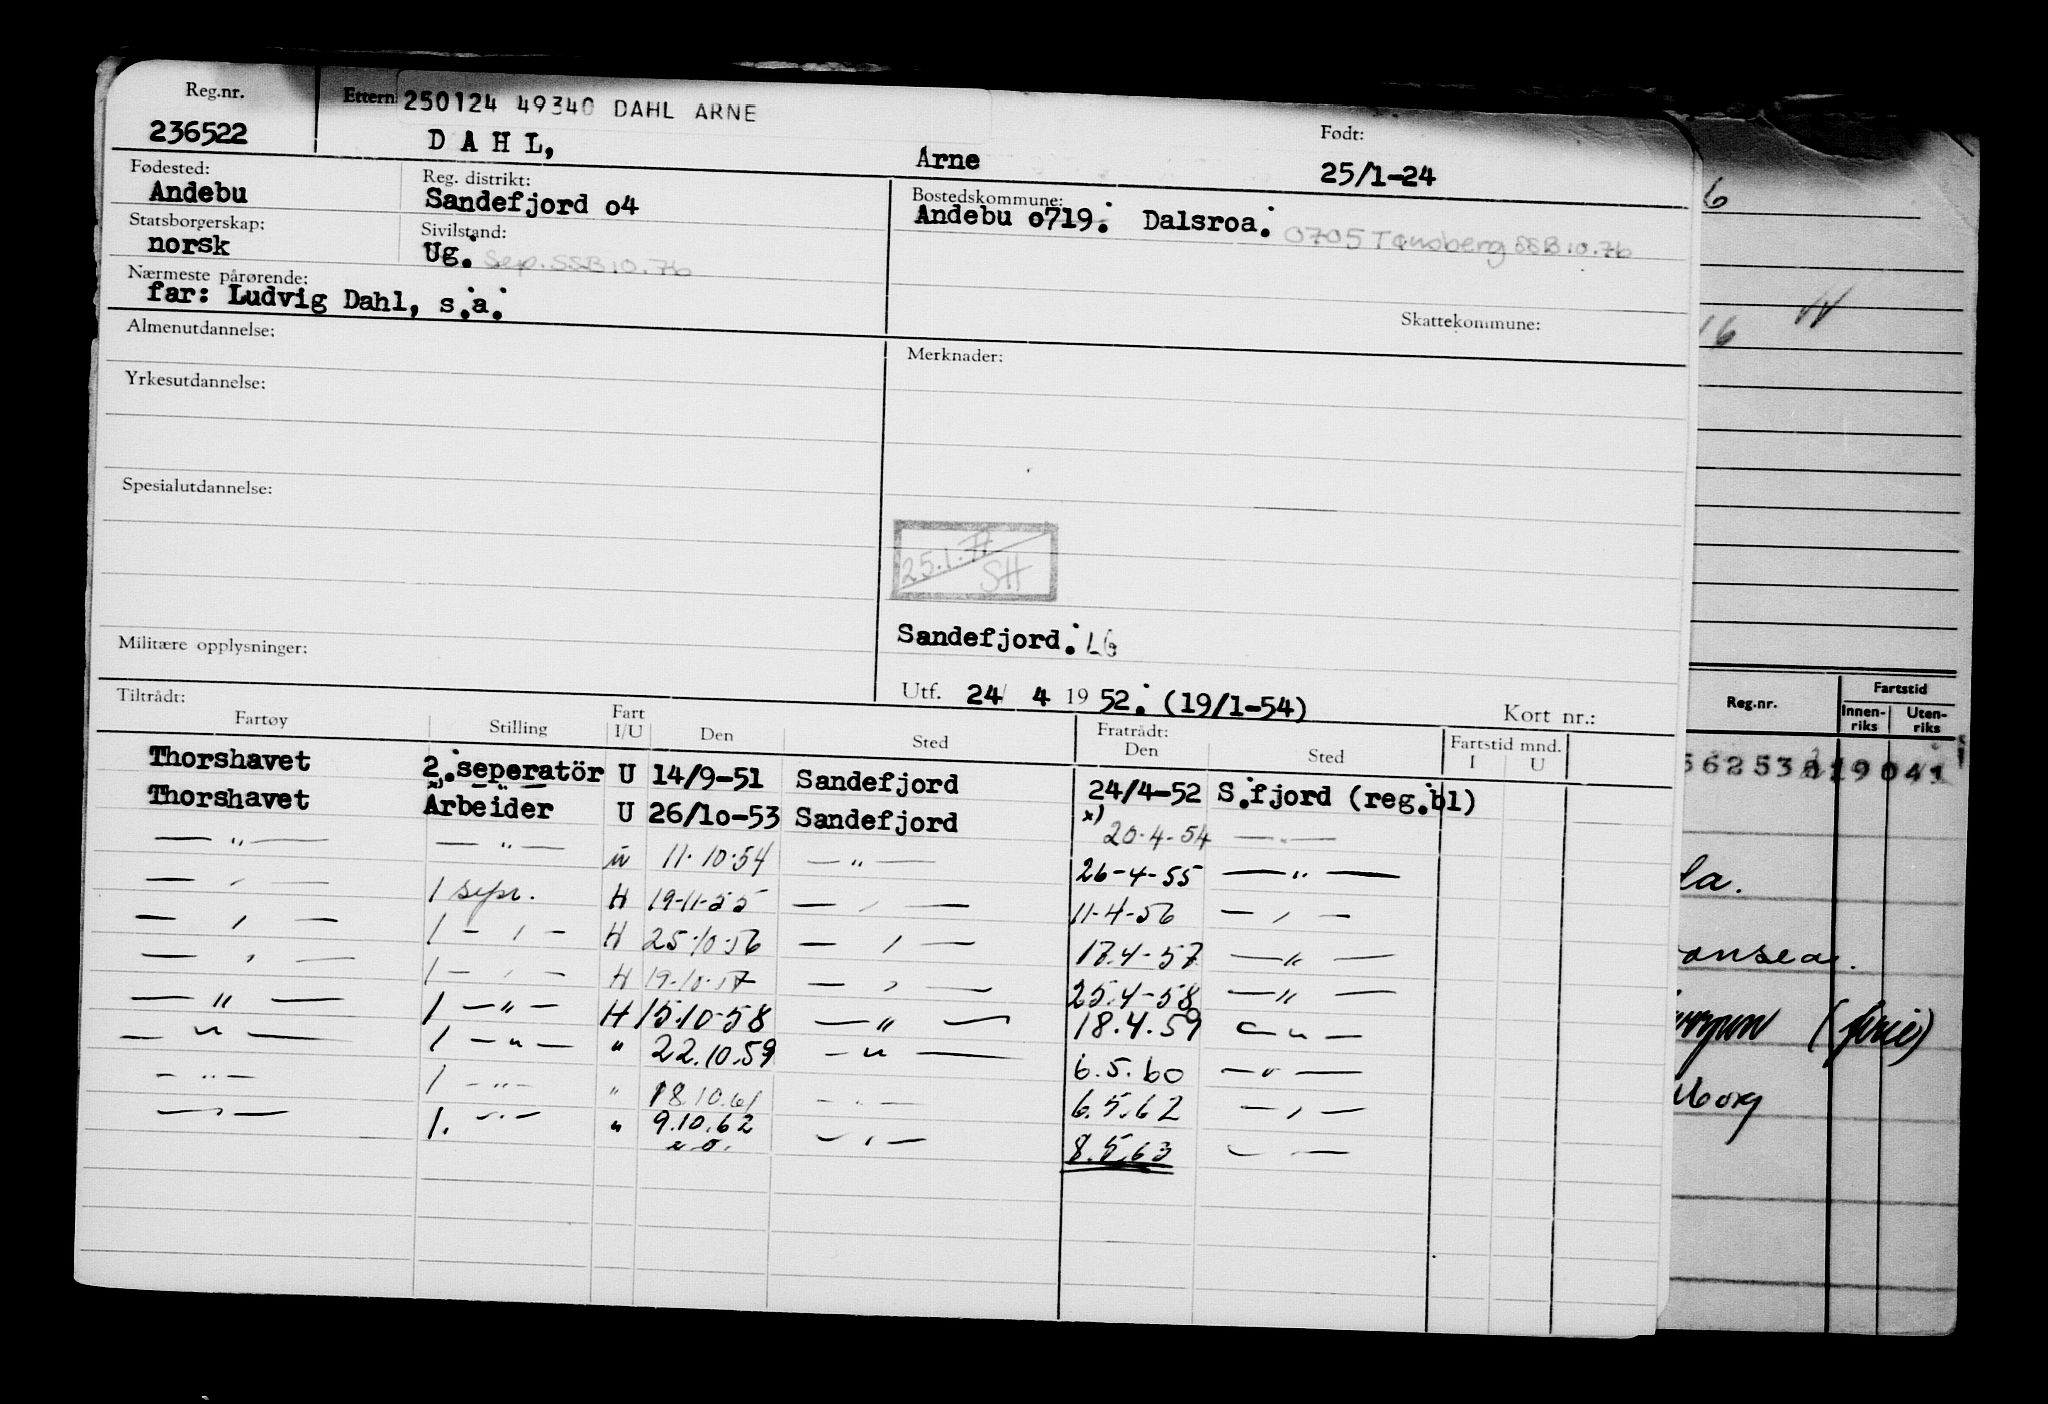 Reg.nr.
Ettern 250124 49340 DAHL ARNE
Født:
236522 D A H L, Arne 25/1-24
Fødested: Reg. distrikt: Bostedskommune:
Andebu Sandefjord o4 Andebu o719. Dalsroa. 0705 Tønsberg SSB 10.76
Statsborgerskap: Sivilstand:
norsk Ug. Sep. SSB 10.76
Nærmeste pårørende:
far: Ludvig Dahl, s.a.
Skattekommune:
Almenutdannelse: Merknader:
Yrkesutdannelse:
Spesialutdannelse:
25.1.77
SH
Sandefjord. LG
Militære opplysninger:
Utf. 24 4 19 52. (19/1-54) Kort nr.:
Tiltrådt: Fratrådt:
Fartøy Stilling Fart I/U Den Sted Den Sted Fartstid mnd. I U
Thorshavet 2. seperatör U 14/9-51 Sandefjord 24/4-52 S.fjord (reg.bl)
Thorshavet x) Arbeider U 26/1o-53 Sandefjord x) 20-4-54 — " —
— " — — " — u 11.10.54 — " — 26-4-55 — " —
— " — 1 sepr. H 19-11-55 — " — 11-4-56 — " —
— " — 1 — " — H 25.10.56 — " — 17.4-57 — " —
— " — 1 — " — H 19.10.57 — " — 25.4-58 — " —
— " — 1 — " — H 15.10-58 — " — 18.4.59 — " —
— " — 1 — " — " 22.10.59 — " — 6.5.60 — " —
— " — 1 — " — " 18.10.61 — " — 6.5.62 — " —
— " — 1. — " — " 9.10.62 — " — 8.5.63 — " —
6
16
Reg.nr. Fartstid
Innenriks Utenriks
la.
borg